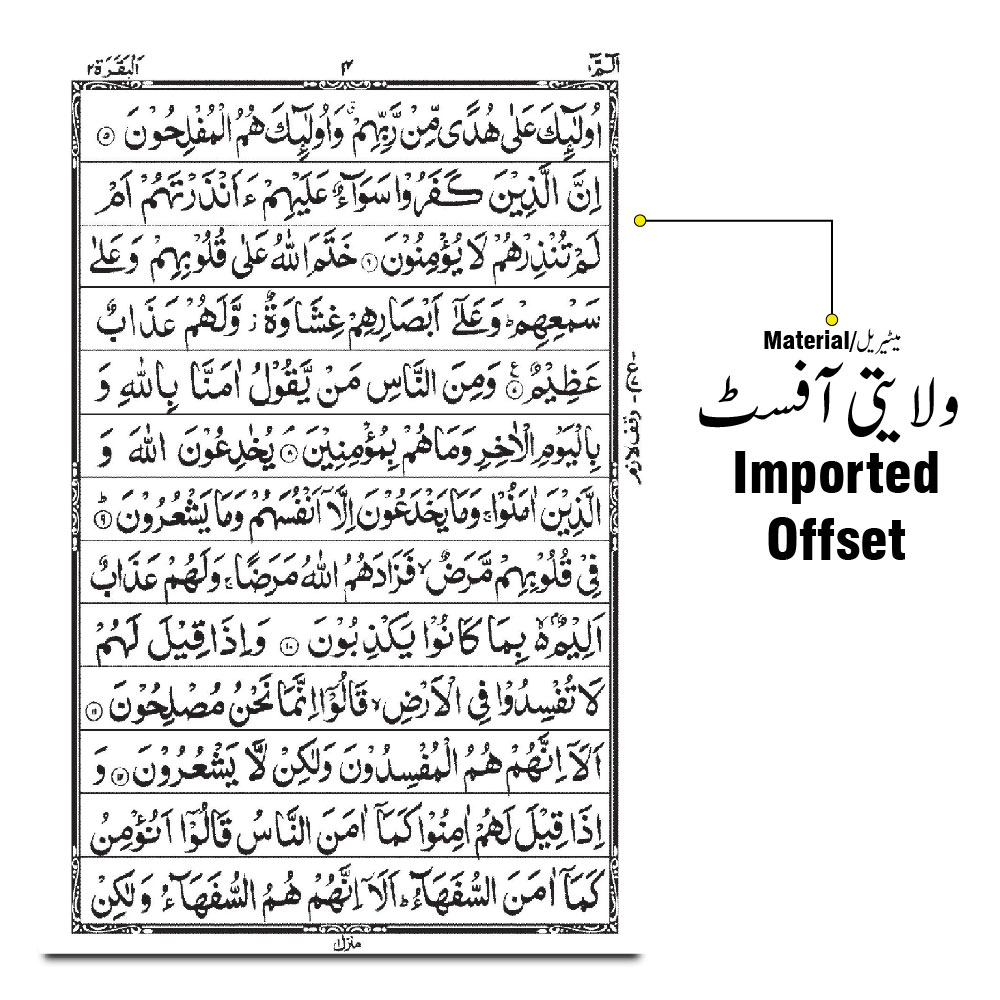 الٓمّٓ ۱
۴
البقرة ۲
اُولٰٓئِكَ عَلٰى هُدًى مِّنْ رَّبِّهِمْ ۗ وَاُولٰٓئِكَ هُمُ الْمُفْلِحُوْنَ ۵
اِنَّ الَّذِيْنَ كَفَرُوْا سَوَآءٌ عَلَيْهِمْ ءَاَنْذَرْتَهُمْ اَمْ
لَمْ تُنْذِرْهُمْ لَا يُؤْمِنُوْنَ ۶ خَتَمَ اللّٰهُ عَلٰى قُلُوْبِهِمْ وَعَلٰى
سَمْعِهِمْ ؕ وَعَلٰٓى اَبْصَارِهِمْ غِشَاوَةٌ ز وَّلَهُمْ عَذَابٌ
عَظِيْمٌ ۷ وَمِنَ النَّاسِ مَنْ يَّقُوْلُ اٰمَنَّا بِاللّٰهِ وَ
بِالْيَوْمِ الْاٰخِرِ وَمَا هُمْ بِمُؤْمِنِيْنَ ۸ يُخٰدِعُوْنَ اللّٰهَ وَ
الَّذِيْنَ اٰمَنُوْا ۚ وَمَا يَخْدَعُوْنَ اِلَّآ اَنْفُسَهُمْ وَمَا يَشْعُرُوْنَ ۹ؕ
فِىْ قُلُوْبِهِمْ مَّرَضٌ ۙ فَزَادَهُمُ اللّٰهُ مَرَضًا ۚ وَلَهُمْ عَذَابٌ
اَلِيْمٌۢ ۙ بِمَا كَانُوْا يَكْذِبُوْنَ ۱۰ وَاِذَا قِيْلَ لَهُمْ
لَا تُفْسِدُوْا فِى الْاَرْضِ ۙ قَالُوْٓا اِنَّمَا نَحْنُ مُصْلِحُوْنَ ۱۱
اَلَآ اِنَّهُمْ هُمُ الْمُفْسِدُوْنَ وَلٰكِنْ لَّا يَشْعُرُوْنَ ۱۲ وَ
اِذَا قِيْلَ لَهُمْ اٰمِنُوْا كَمَآ اٰمَنَ النَّاسُ قَالُوْٓا اَنُؤْمِنُ
كَمَآ اٰمَنَ السُّفَهَآءُ ؕ اَلَآ اِنَّهُمْ هُمُ السُّفَهَآءُ وَلٰكِنْ
منزل ۱
وقف لازم
Material/میٹیریل
ولایتی آفسٹ
Imported
Offset